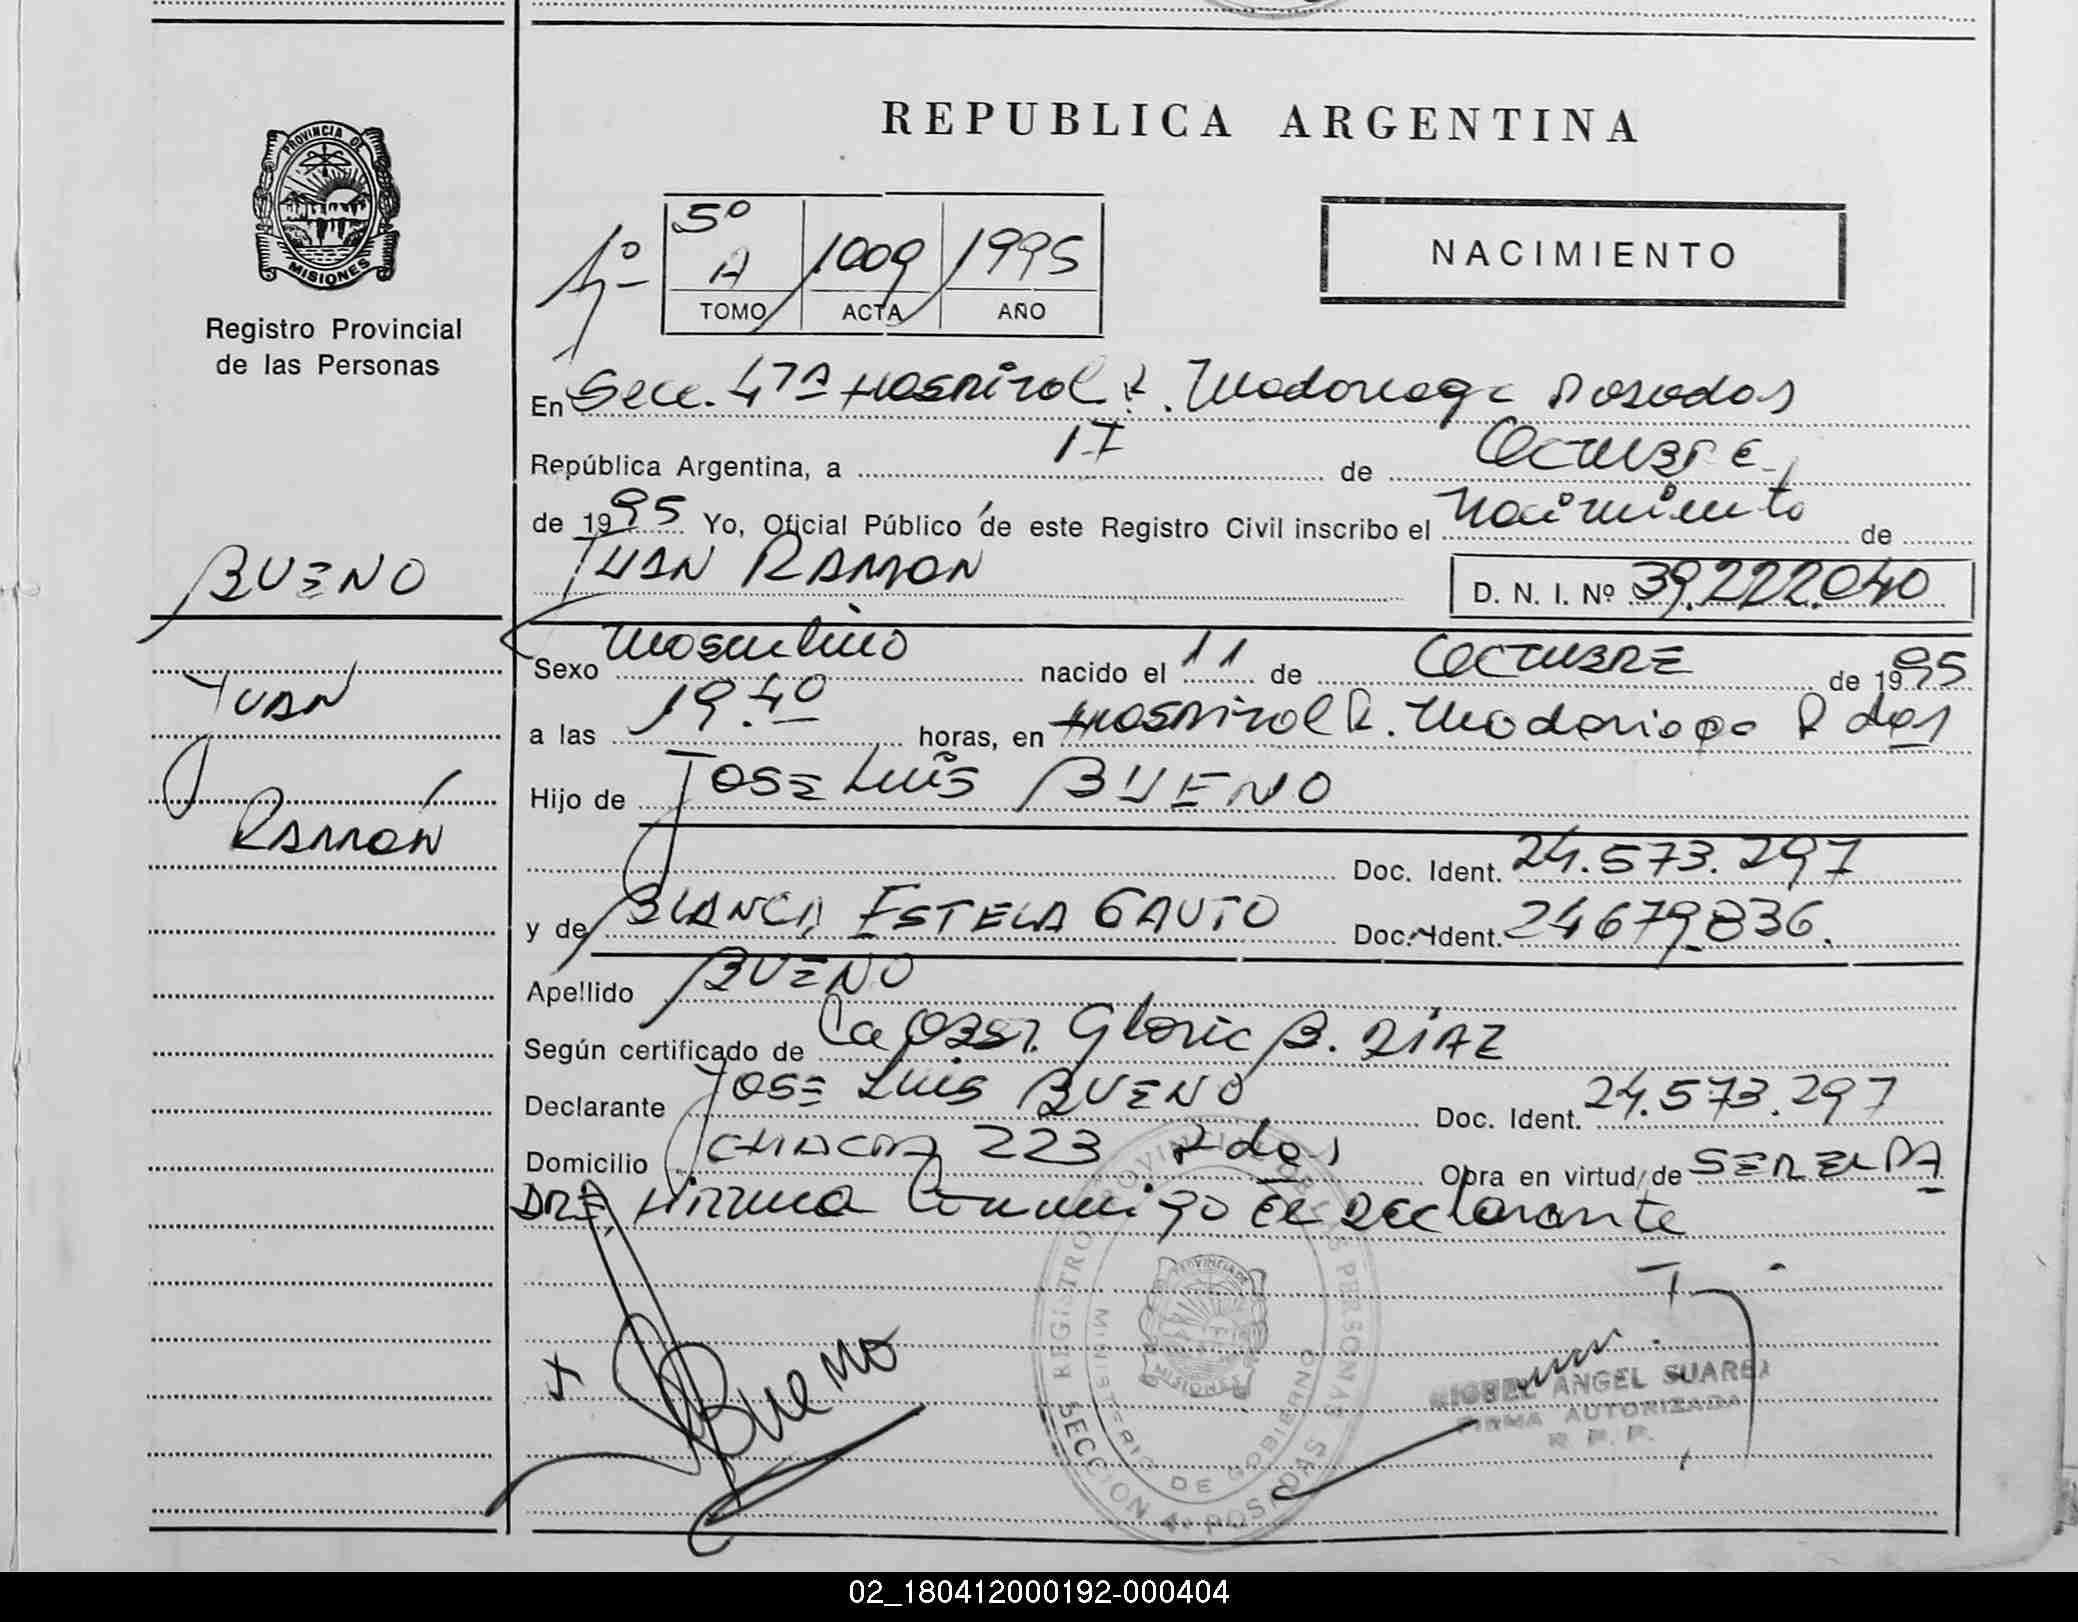 REPUBLICA ARGENTINA
PROVINCIA DE
MISIONES
Registro Provincial
de las Personas
5º
A 1009 1995
TOMO ACTA AÑO
NACIMIENTO
En Secc. 4TA Hospital R. Madariaga Posadas
República Argentina, a 17 de Octubre
de 1995 Yo, Oficial Público de este Registro Civil inscribo el Nacimiento de
JUAN RAMON D. N. I. Nº 39.222.040
BUENO
JUAN
RAMÓN
Sexo Masculino nacido el 11 de OCTUBRE de 1995
a las 19.40 horas, en Hospital R. Madariaga Pdas
Hijo de JOSE Luis BUENO
Doc. Ident. 24.573.297
y de BLANCA ESTELA GAUTO Doc. Ident. 24679836.
Apellido BUENO
Según certificado de La Obst. Gloria B. DÍAZ
Declarante JOSE Luis BUENO Doc. Ident. 24.573.297
Domicilio 223 Pdas Obra en virtud de SER EL PA
DRE, Firma Conmigo El Declarante
Bueno
REGISTRO PROVINCIAL DE LAS PERSONAS
MINISTERIO DE GOBIERNO
SECCION 4ª POSADAS
PROVINCIA DE
MISIONES
MIGUEL ANGEL SUAREZ
FIRMA AUTORIZADA
R. P. P.
02_180412000192-000404